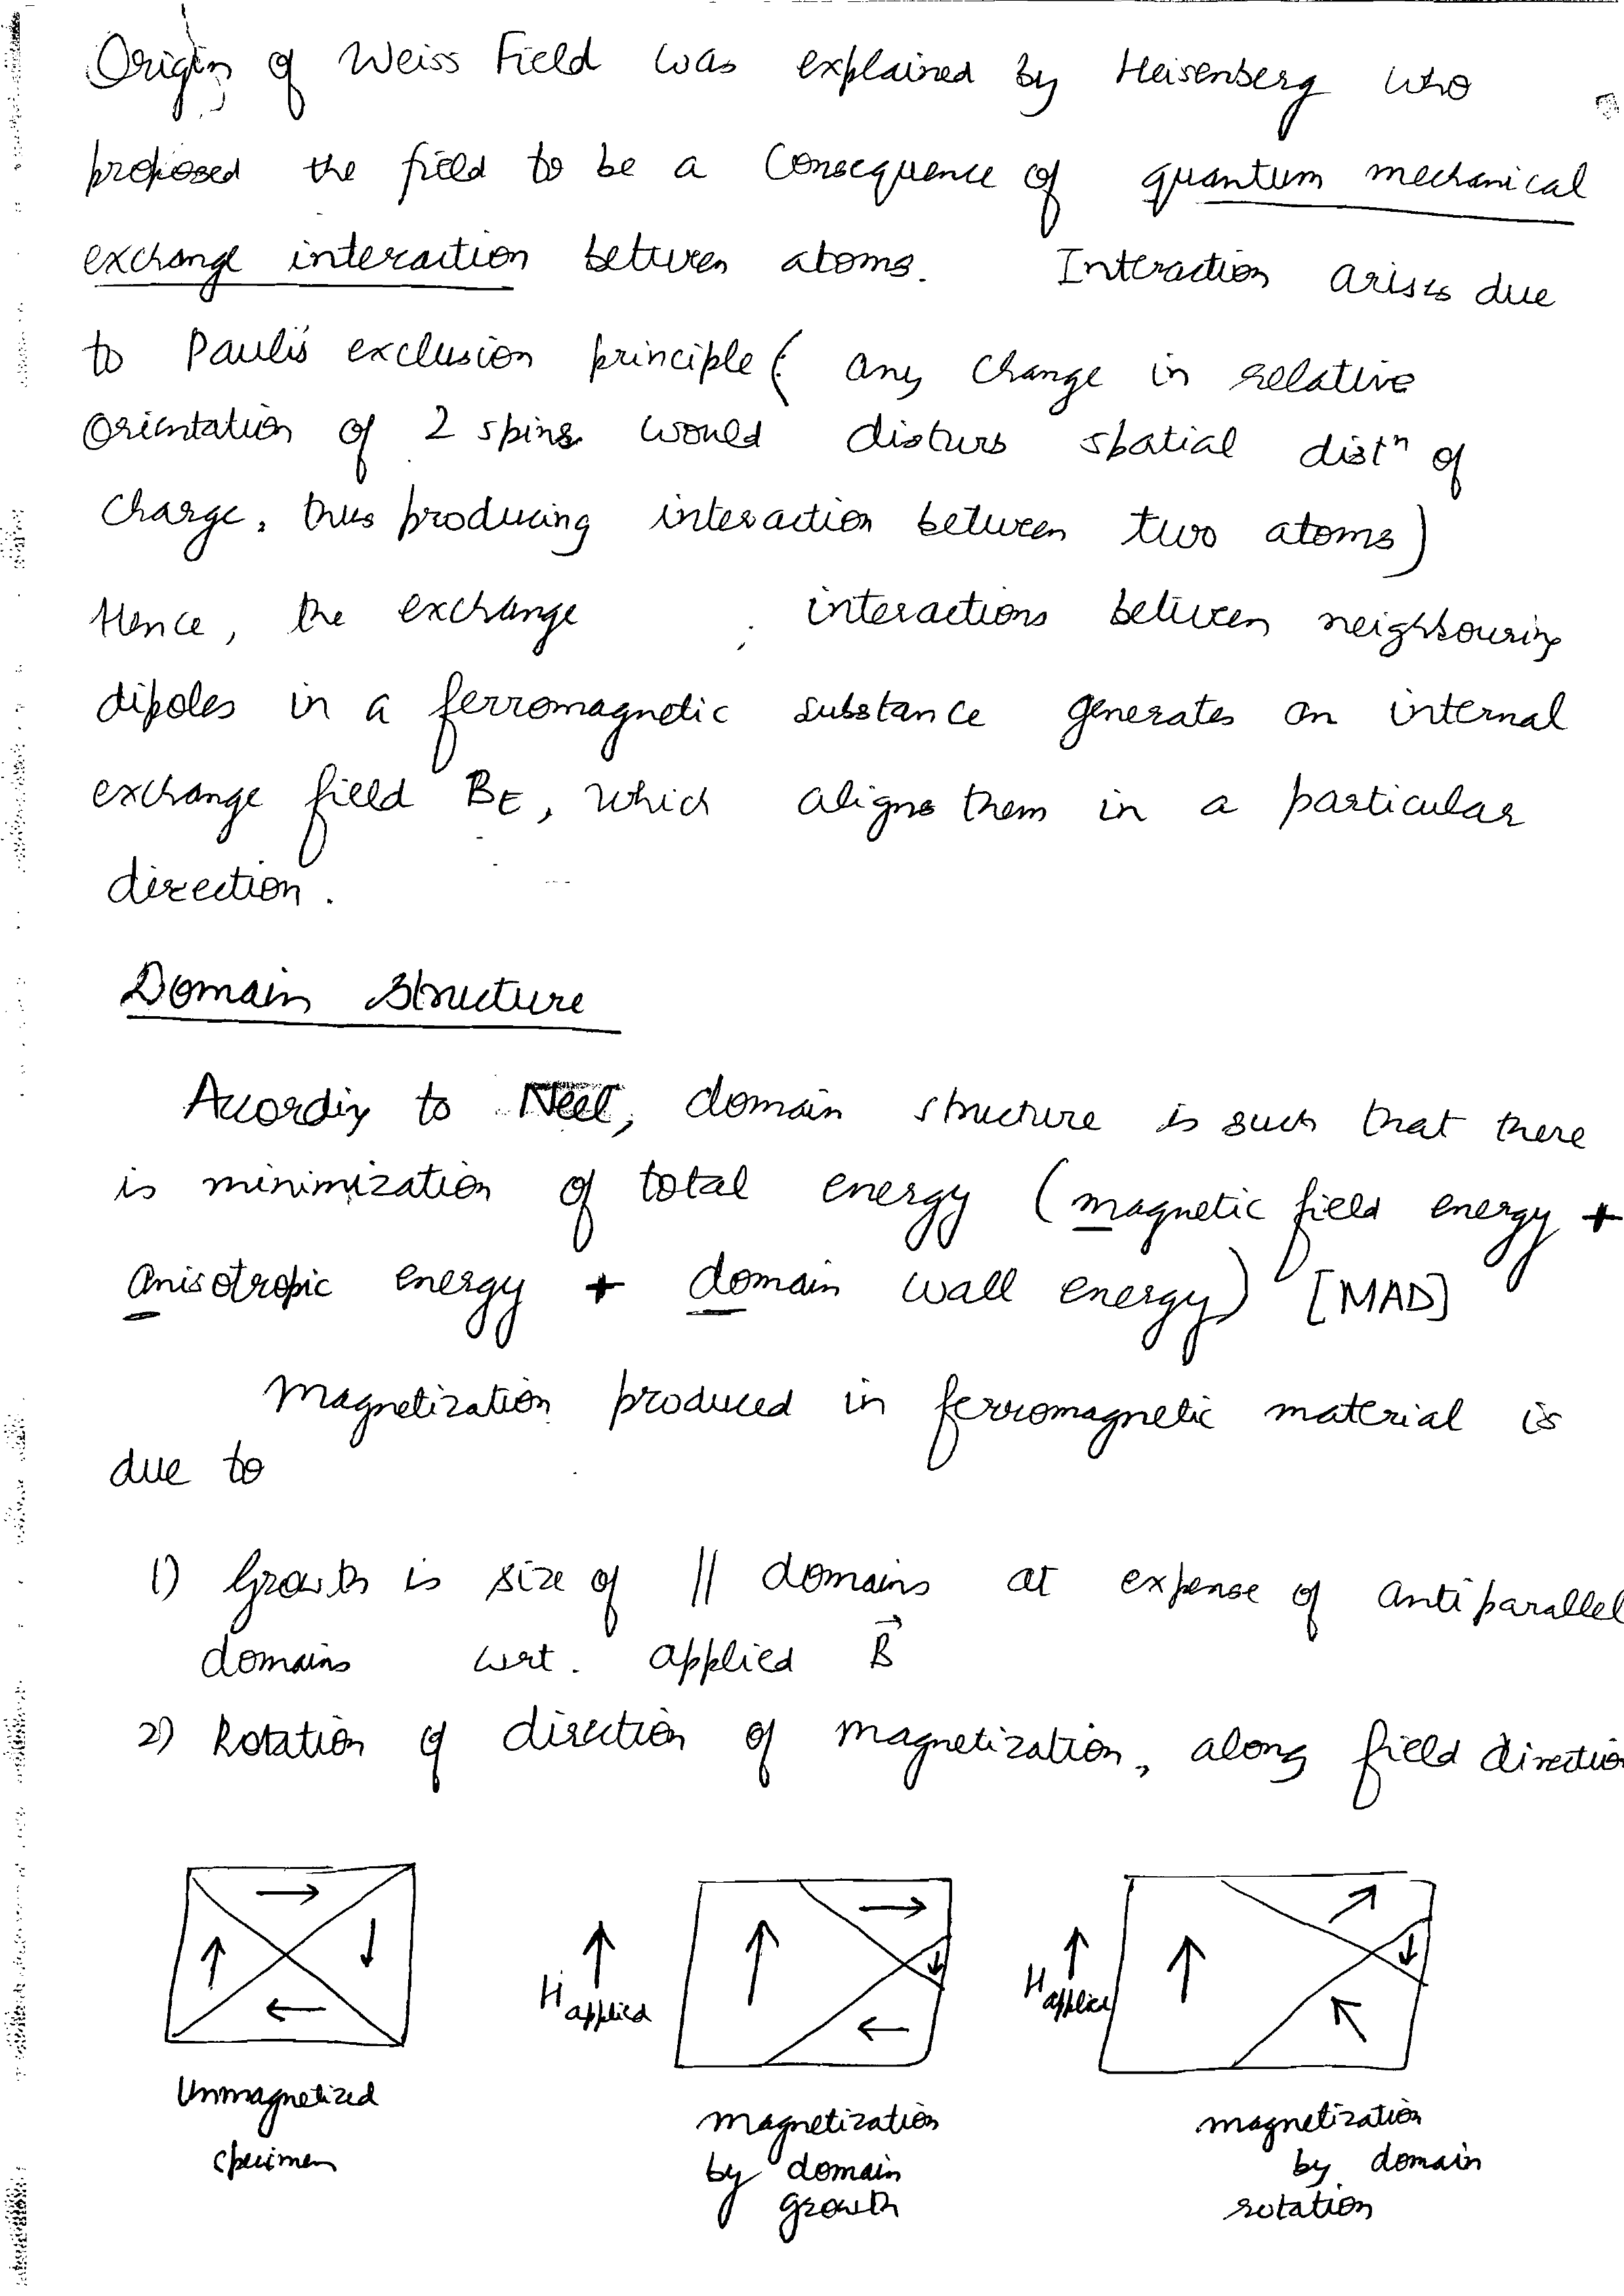 Origin of Weiss Field was explained by Heisenberg who
proposed the field to be a Consequence of quantum mechanical
exchange interaction between atoms. Interaction arises due
to Pauli's exclusion principle ( any change in relative
Orientation of 2 spins would disturb spatial distⁿ of
Charge, thus producing interaction between two atoms)
Hence, the exchange interactions between neighbouring
dipoles in a ferromagnetic substance generates an internal
exchange field BE, which aligns them in a particular
direction.
Domain Structure
According to Neel, domain structure is such that there
is minimization of total energy (magnetic field energy +
anisotropic energy + domain wall energy) [MAD]
Magnetization produced in ferromagnetic material is
due to
1) Growth is size of || domains at expense of antiparallel
domains wrt. applied B⃗
2) Rotation of direction of magnetization, along field direction
H applied
H applied
Unmagnetized
specimen
magnetization
by domain
growth
magnetization
by domain
rotation